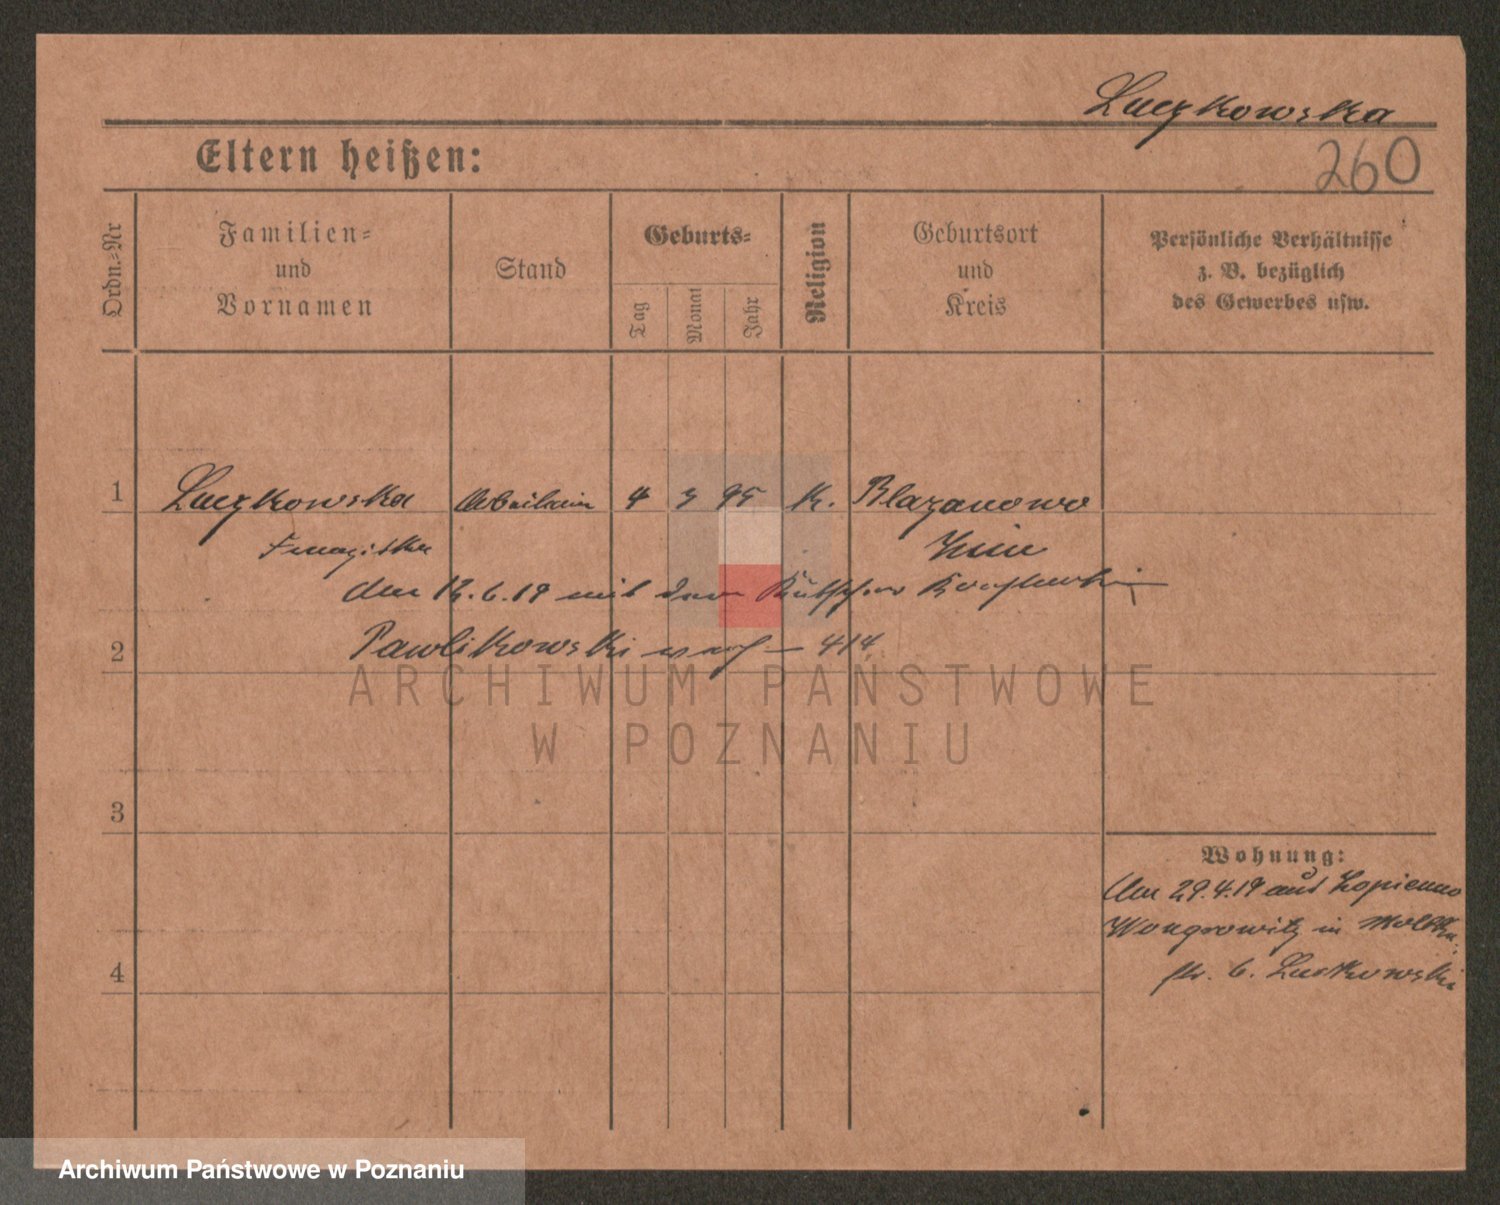 Luczkowska
Eltern heißen:
260
Ordn.-Nr
Familien-
und
Vornamen
Stand
Geburts-
Tag
Monat
Jahr
Religion
Geburtsort
und
Kreis
Persönliche Verhältnisse
z. B. bezüglich
des Gewerbes usw.
1 Luczkowska Arbeiterin 4 3 95 K. Blazanowo
Znin
den 12.6.19 mit dem
2 Pawlikowski 414
ARCHIWUM PAŃSTWOWE
W POZNANIU
3
Wohnung:
Am 29.4.19 aus Lopienno
Wongrowitz in Moltke
4
str. 6. Luczkowski
Archiwum Państwowe w Poznaniu